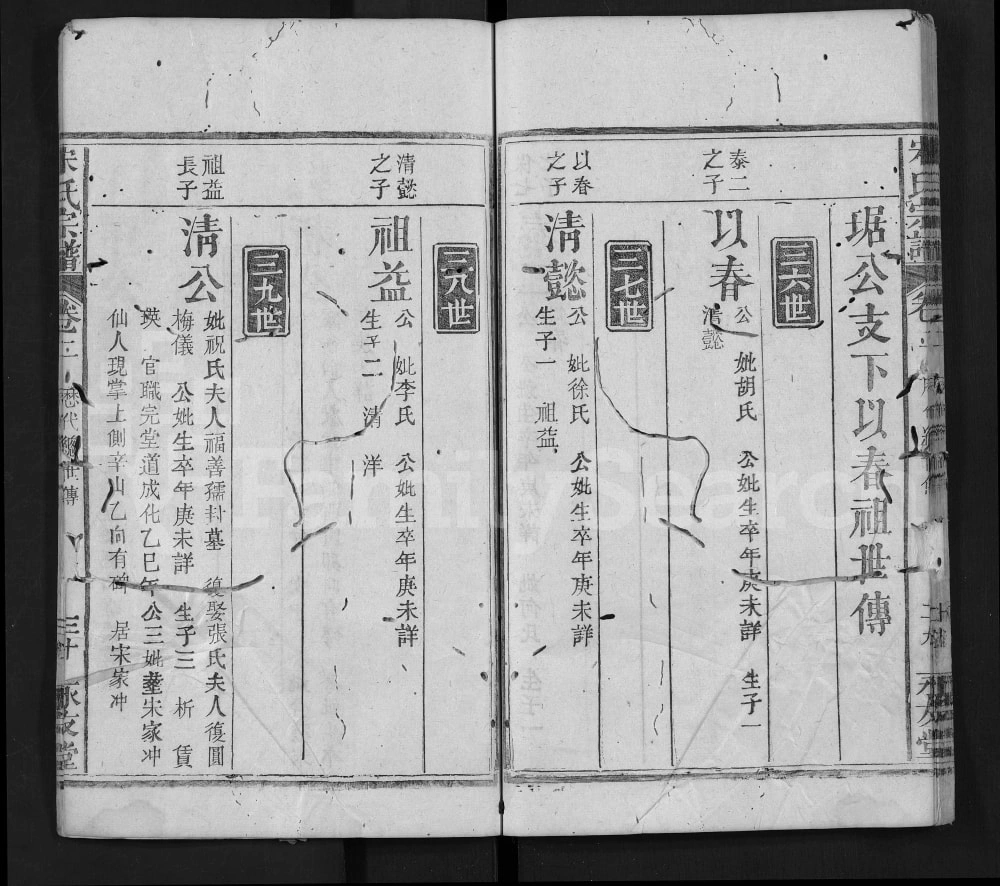 琚公支下以春祖世傳
三六世
泰二
之子
以春
公 妣胡氏 公妣生卒年庚未詳 生子一
清懿
三七世
以春
之子
清懿
公 妣徐氏 公妣生卒年庚未詳
生子一 祖益
三八世
清懿
之子
祖益
公 妣李氏 公妣生卒年庚未詳
生子二 清 洋
三九世
祖益
長子
清公
妣祝氏夫人福善孺封墓 復娶張氏夫人復圓
梅儀 公妣生卒年庚未詳 生子三 析 賃
瑛 官職完堂道成化乙巳年公三妣塟朱家冲
仙人現掌上側辛山乙向有碑 居宋家冲
宋氏宗譜 卷三 歷代繼世傳 三十 永文堂